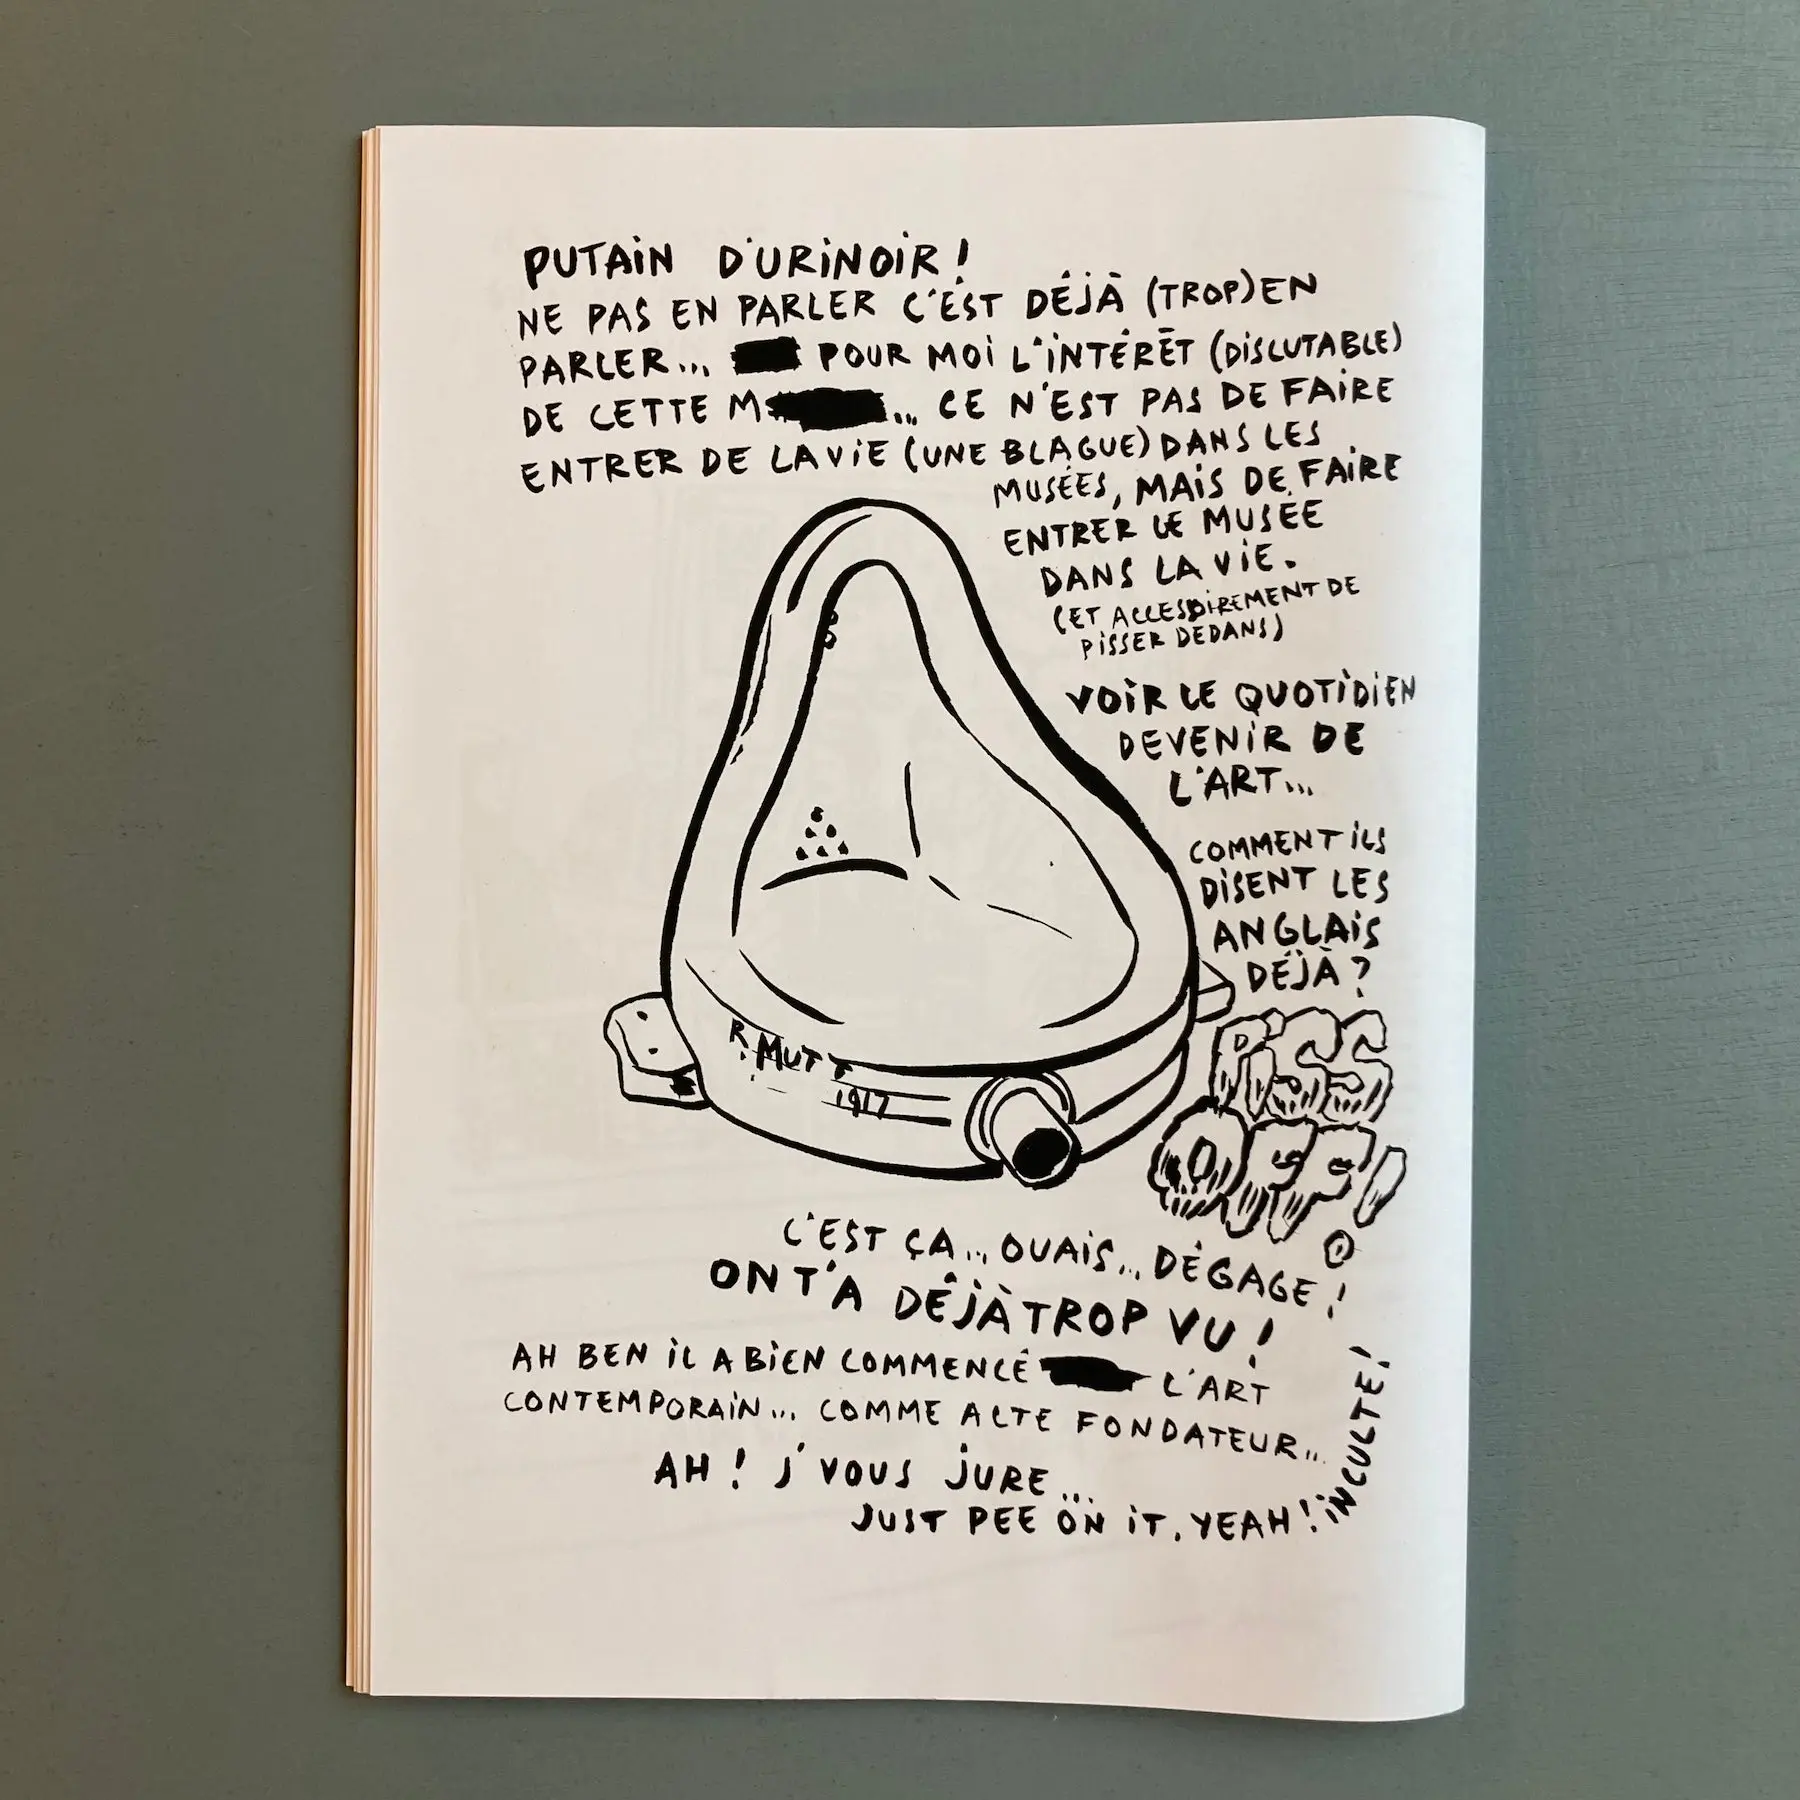 PUTAIN D'URINOIR!
NE PAS EN PARLER C'EST DÉJÀ (TROP) EN
PARLER... POUR MOI L'INTÉRÊT (DISCUTABLE)
DE CETTE M... CE N'EST PAS DE FAIRE
ENTRER DE LA VIE (UNE BLAGUE) DANS LES
MUSÉES, MAIS DE FAIRE
ENTRER LE MUSÉE
DANS LA VIE.
(ET ACCESOIREMENT DE
PISSER DEDANS)
VOIR LE QUOTIDIEN
DEVENIR DE
L'ART...
COMMENT ILS
DISENT LES
ANGLAIS
DÉJÀ?
PISS
OFF!
R. MUTT
1917
C'EST ÇA... OUAIS... DÉGAGE!
ON T'A DÉJÀ TROP VU!
AH BEN IL A BIEN COMMENCÉ L'ART
CONTEMPORAIN... COMME ACTE FONDATEUR...
AH! J'VOUS JURE...
JUST PEE ON IT. YEAH!
INCULTE!